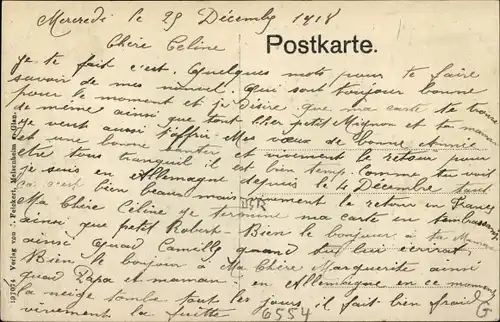 Mercredi le 25 Décembre 1918
Chère Celine
Postkarte.
Je te fait c'est. Quelques mots pour te faire
savoir de mes nouvel. Qui sont toujour bonne
pour le moment et je Désire que ma carte te trouve
de même ainsi que tont cher petit Mignon et ta maman
Je vient aussi t'offrir Mes vœux de bonne Année
et une bonne santer et vivement le retour pour
etre tous tranquil il est bien temp. Comme tu voit
je suis en Allemagne depuis le 4 Décembre
c'est bien beau mais vivement le retour en France
Ma Chère Celine je termine ma carte en t'embrassant
ainsi que petit Robert - Bien le bonjour à ta Maman
ainsi Quad Camille quand tu lui écrirat
Bien le bonjour à Ma Chère Marguerite ainsi
quad Papa et maman - en Allemagne en ce moment
la neige tombe tout les jours il fait bien froid
vivement la fuitte
6554
G
192074 Verlag von J. Feickert, Molsheim